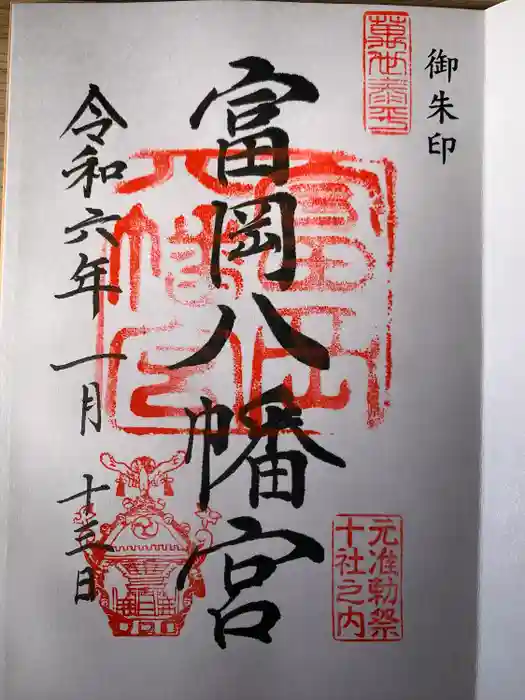 御朱印
萬世泰平
富岡八幡宮
富岡
八幡宮
元准勅祭
十社之内
令和六年一月十五日